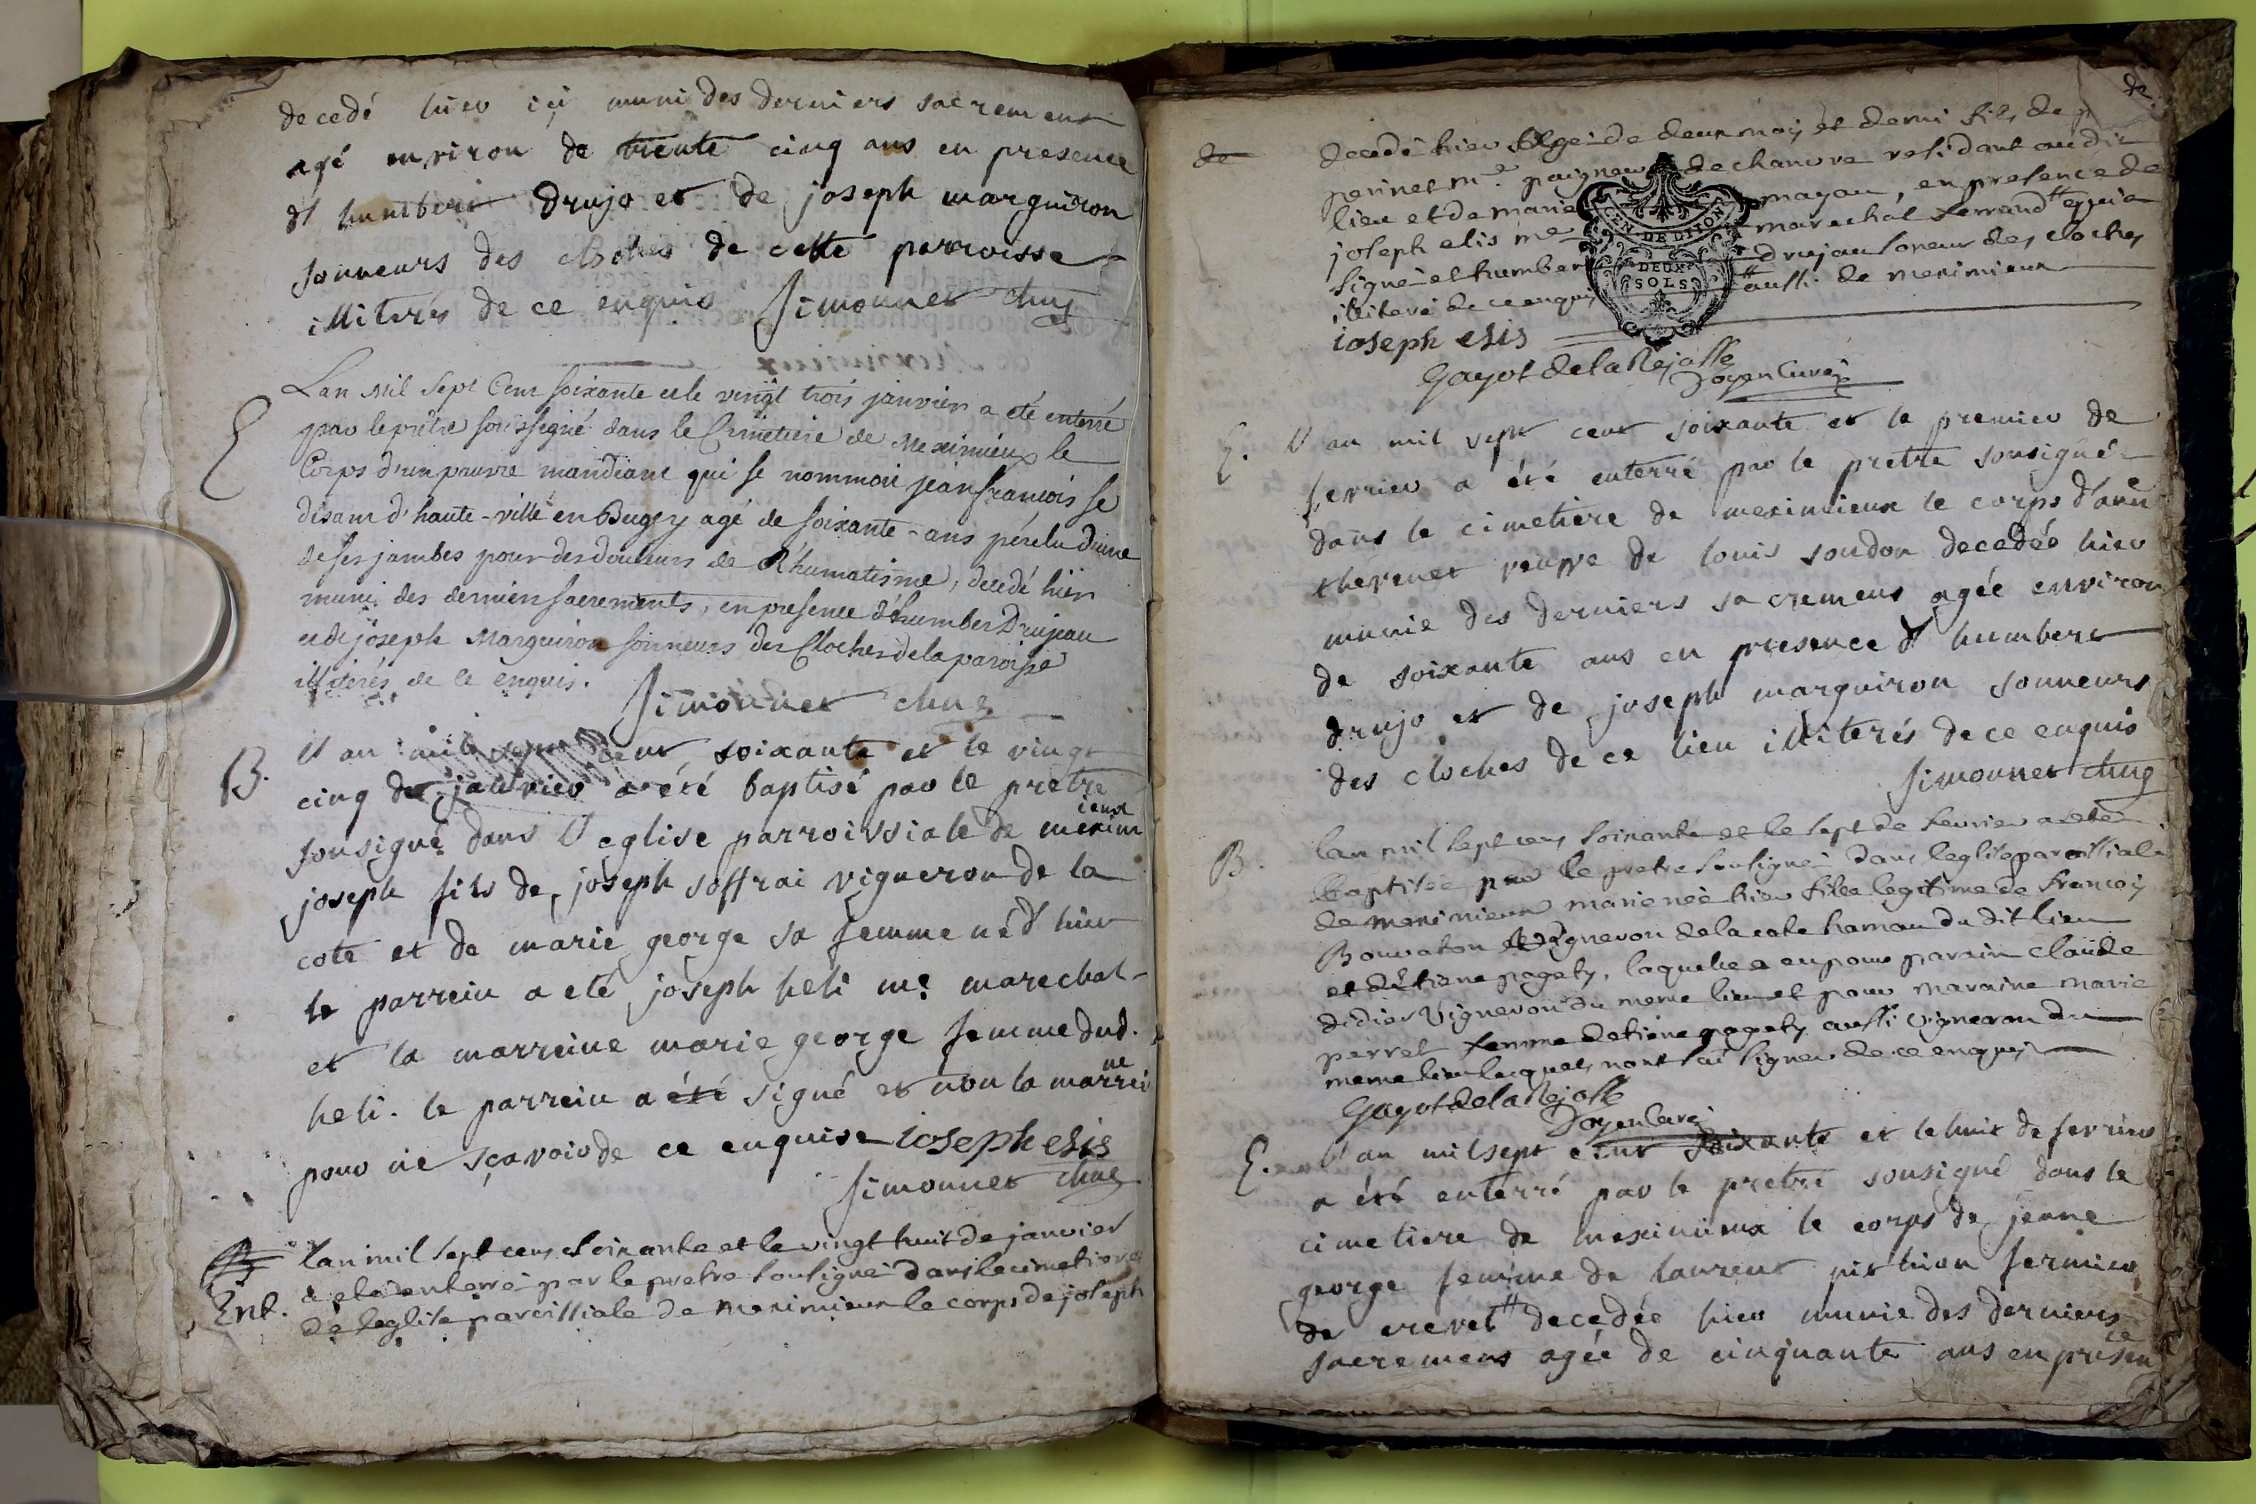 decedé hier ici muni des derniers sacremens
agé environ de trente cinq ans en presence
d'humbert Drujo et de joseph marguiron
sonneurs des cloches de cette parroisse
illiterés de ce enquis Simonnet
E
Lan Mil Sept Cent soixante et le vingt trois janvier a eté enterré
par le prêtre soussigné dans le Cimetiere de Meximieux le
Corps d'un pauvre mandiant qui se nommoit jean françois se
disant d'haute-ville en Bugey agé de soixante-ans pérclu d'une
de ses jambes pour des douleurs de Rhumatisme, decedé hier
muni des derniers sacrements, en presence d'humber Drujeau
et de joseph Marguiron sonneurs des Cloches de la paroisse
illiterés de ce enquis.
Simonnet
B.
l'an mil sept cent soixante et le vingt
cinq de janvier a été baptisé par le pretre
sousigné dans l'eglise parroissiale de meximieux
joseph fils de joseph soffrai vigneron de la
cote et de marie george sa femme né d'hier
le parrein a eté joseph heli me marechal
et la marreine marie george femme dud.
heli. le parrein a été signé et non la marreine
pour ne sçavoir de ce enquise ioseph elis
Simonnet
Ent.
lan mil sept cens soixante et le vingt huit de janvier
a eté enterré par le pretre sousigné dans le cimetiere
de leglise paroissiale de meximieux le corps de joseph
de
de
decedé hier agé de deux mois et demi fils de
perinet me paigneur de chanvre residant audit
lieu et de marie mayan, en presence de
joseph elis me marechal
signé et humbert drujau soneur des cloches
illiteré de ce enquis aussi de meximieux
ioseph elis
GEN. DE LYON
DEUX
SOLS
Gayot de la Rejasse
Doyen Curé
E. l'an mil sept cent soixante et le premier de
fevrier a été enterré par le pretre sousigné
dans le cimetiere de meximieux le corps d'anne
thevenet veuve de louis soudon decedée hier
munie des derniers sacremens agée environ
de soixante ans en presence d'humbert
drujo et de joseph marguiron sonneurs
des cloches de ce lieu illiterés de ce enquis
Simonnet
B.
lan mil sept cens soixante et le sept de fevrier a eté
baptisée par le pretre sousigné dans leglise paroissiale
de meximieux marie née hier fille legitime de françois
Bouvaton vigneron de la cote hamau du dit lieu
et detiene pagety, laquelle a eu pour parain claude
didier vigneron du meme lieu et pour maraine marie
perret femme detiene pagety aussi vigneron du
meme lieu lesquels nont sçu signer de ce enquis
Gayot de la Rejasse
Doyen Curé
E. l'an mil sept cent soixante et le huit de fevrier
a été enterré par le pretre sousigné dans le
cimetiere de meximieux le corps de jeane
george femme de laurent pithion fermier
de crevet decedée hier munie des derniers
sacremens agée de cinquante ans en presence